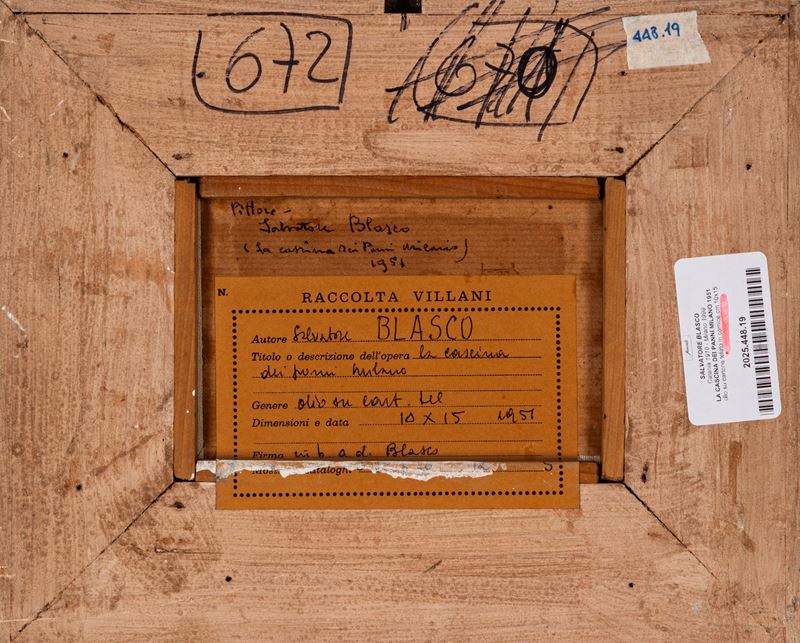 672
670
448.19
Pittore -
Salvatore Blasco
(La cascina dei Panni Milano)
1951
N.
RACCOLTA VILLANI
Autore Salvatore BLASCO
Titolo o descrizione dell'opera la cascina
dei panni Milano
Genere olio su cart. tel
Dimensioni e data 10 X 15 1951
Firma in b. a d. Blasco
SALVATORE BLASCO
Catania 1910 - Milano 1999
LA CASCINA DEI PANNI MILANO 1951
olio su cartone telato in cornice cm 10x15
2025.448.19